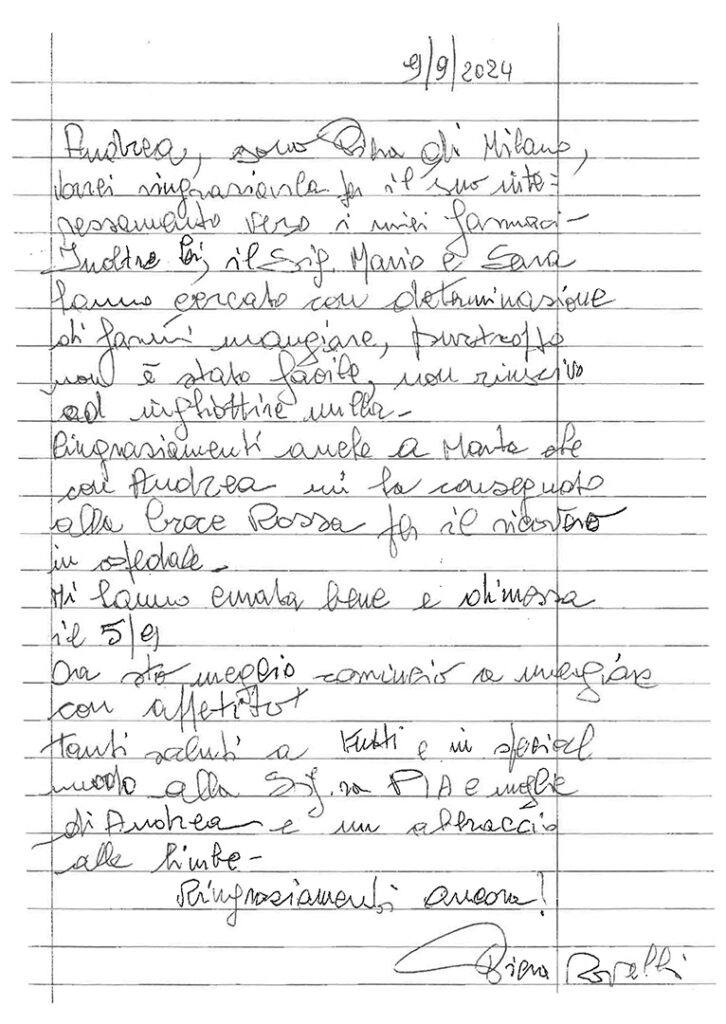 9/9/2024
Andrea, sono di Milano,
Vorrei ringraziarla per il suo inte=
ressamento verso i miei farmaci-
Inoltre lei, il Sig. Mario e Sara
hanno cercato con determinazione
di farmi mangiare, purtroppo
non è stato facile, non riuscivo
ad inghiottire nulla-
Ringraziamenti anche a Marta che
con Andrea mi ha consegnato
alla Croce Rossa per il ricovero
in ospedale-
Mi hanno curata bene e dimessa
il 5/9
Ora sto meglio comincio a mangiare
con appetito
Tanti saluti a tutti e in special
modo alla Sig.ra PIA e moglie
di Andrea e un abbraccio
alle bimbe-
Ringraziamenti ancora!
Rovelli